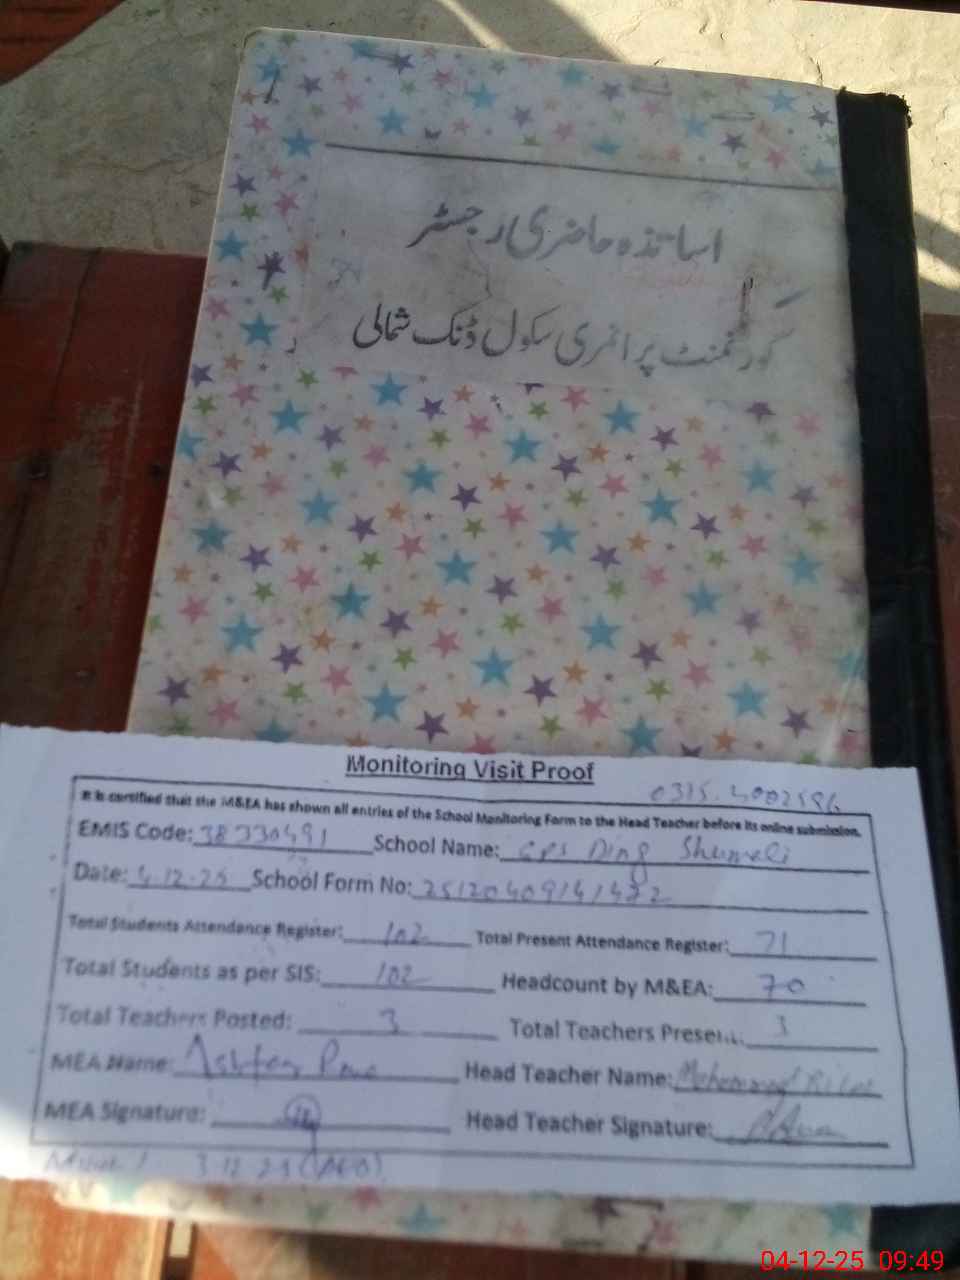 اساتذہ حاضری رجسٹر
گورنمنٹ پرائمری سکول ڈنگ شمالی
Monitoring Visit Proof
0315.4002596
It is certified that the M&EA has shown all entries of the School Monitoring Form to the Head Teacher before its online submission.
EMIS Code: 38330491 School Name: GPS Ding Shumali
Date: 4.12.25 School Form No: 25120409141472
Total Students Attendance Register: 102 Total Present Attendance Register: 71
Total Students as per SIS: 102 Headcount by M&EA: 70
Total Teachers Posted: 3 Total Teachers Present: 3
MEA Name: Head Teacher Name: Mohammad
MEA Signature: Head Teacher Signature:
3-12-25 (AEO)
04-12-25 09:49